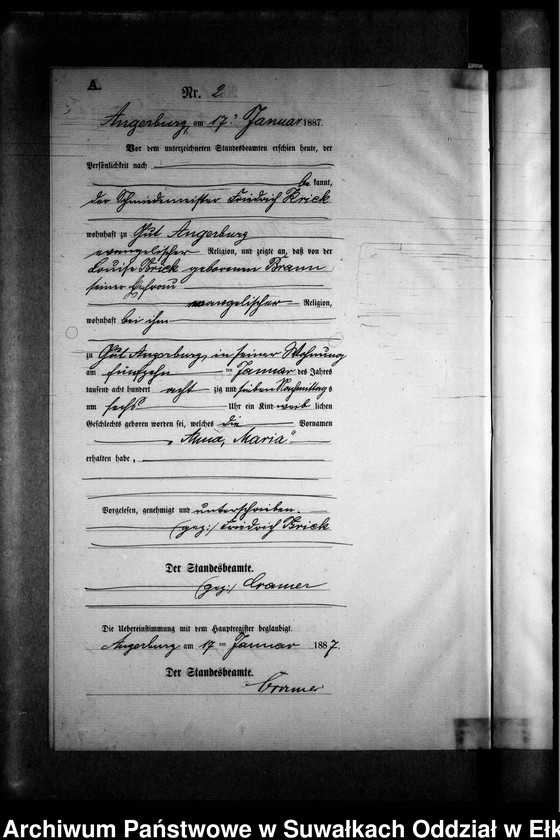 A.
Nr. 2
Angerburg, am 17ten Januar 1887.
Vor dem unterzeichneten Standesbeamten erschien heute, der
Persönlichkeit nach
be kannt,
der Schmiedemeister Friedrich Krick
wohnhaft zu Gut Angerburg
evangelischer Religion, und zeigte an, daß von der
Louise Krick geborenen Braun
seiner Ehefrau
evangelischer Religion,
wohnhaft bei ihm
zu Gut Angerburg, in seiner Wohnung
am fünfzehn ten Januar des Jahres
tausend acht hundert acht zig und sieben Nachmittags
um sechs Uhr ein Kind weib lichen
Geschlechts geboren worden sei, welches die Vornamen
„Anna, Maria“
erhalten habe,
Vorgelesen, genehmigt und unterschrieben.
(gez:) Friedrich Krick
Der Standesbeamte.
(gez:) Cramer
Die Uebereinstimmung mit dem Hauptregister beglaubigt.
Angerburg am 17 ten Januar 1887.
Der Standesbeamte.
Cramer
Archiwum Państwowe w Suwałkach Oddział w Ełk